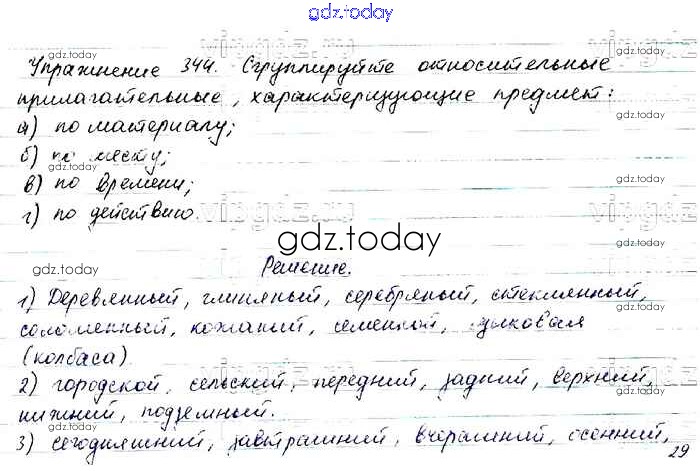 gdz.today
Упражнение 344. Сгруппируйте относительные
прилагательные, характеризующие предмет:
а) по материалу;
б) по месту;
в) по времени;
г) по действию.
gdz.today
Решение.
1) Деревянный, глиняный, серебряный, стеклянный,
соломенный, кожаный, семенной,
(колбаса)
2) городской, сельский, передний, задний, верхний,
нижний, подземный.
3) сегодняшний, завтрашний, вчерашний, осенний,
29